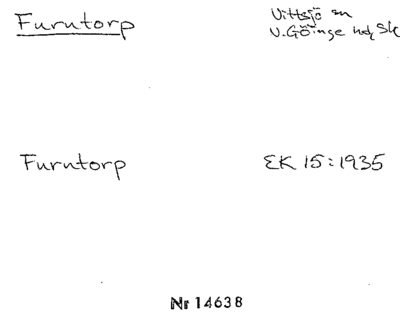 Furutorp
Vittsjö sn
V.Göinge hd Sk
Furutorp
EK 15:1935
Nr 14638